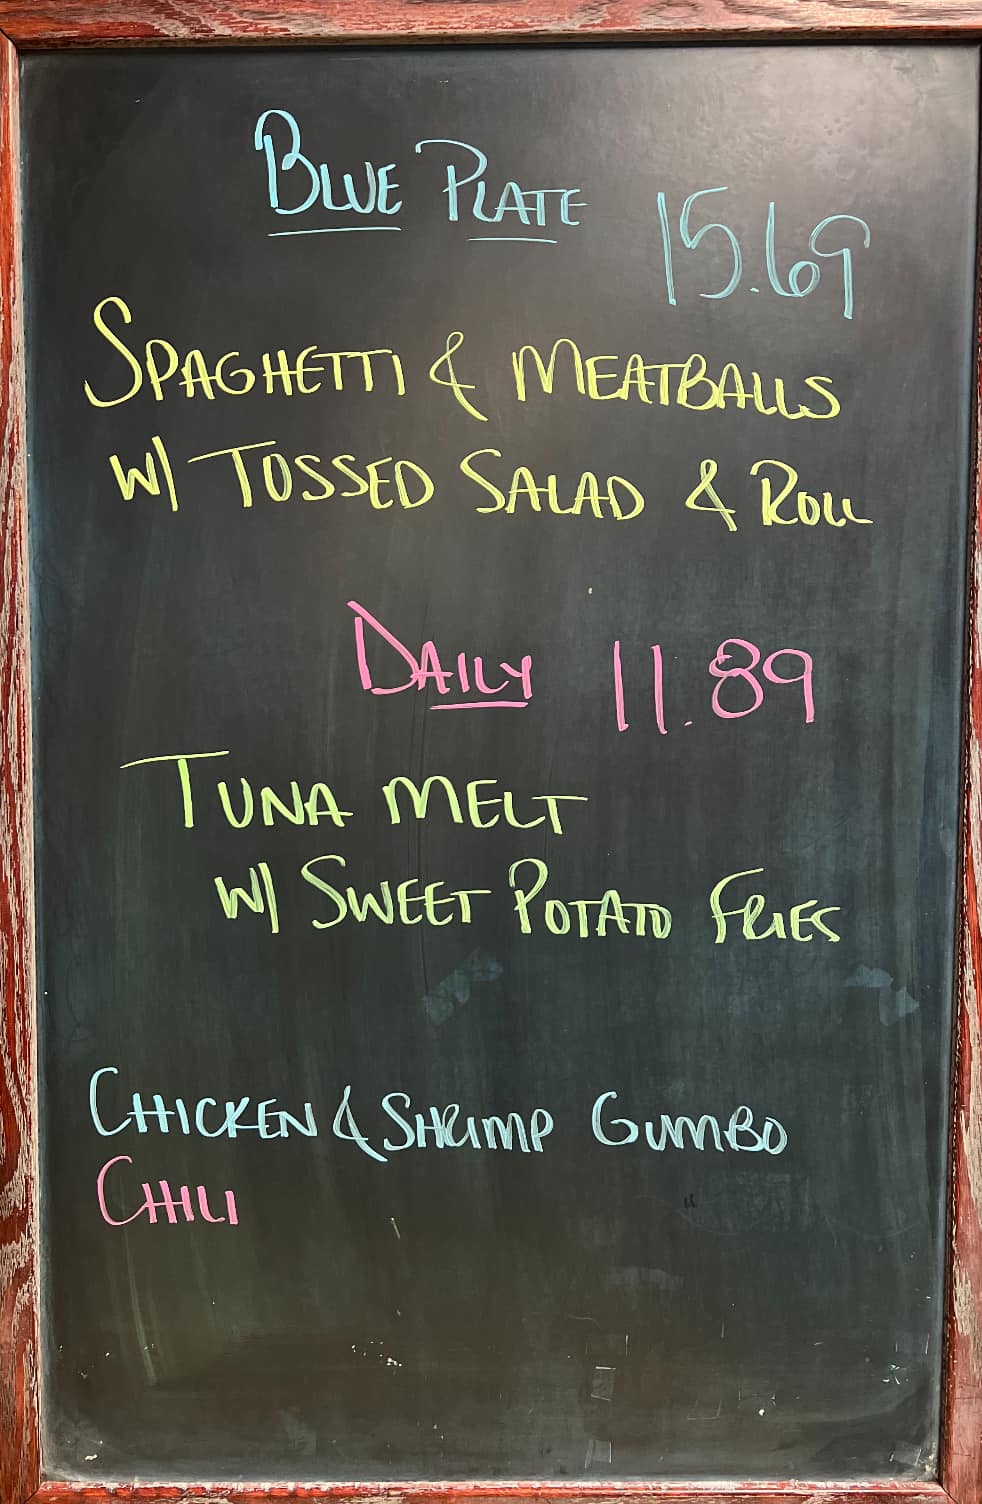 BLUE PLATE 15.69
SPAGHETTI & MEATBALLS
W/ TOSSED SALAD & ROLL
DAILY 11.89
TUNA MELT
W/ SWEET POTATO FRIES
CHICKEN & SHRIMP GUMBO
CHILI